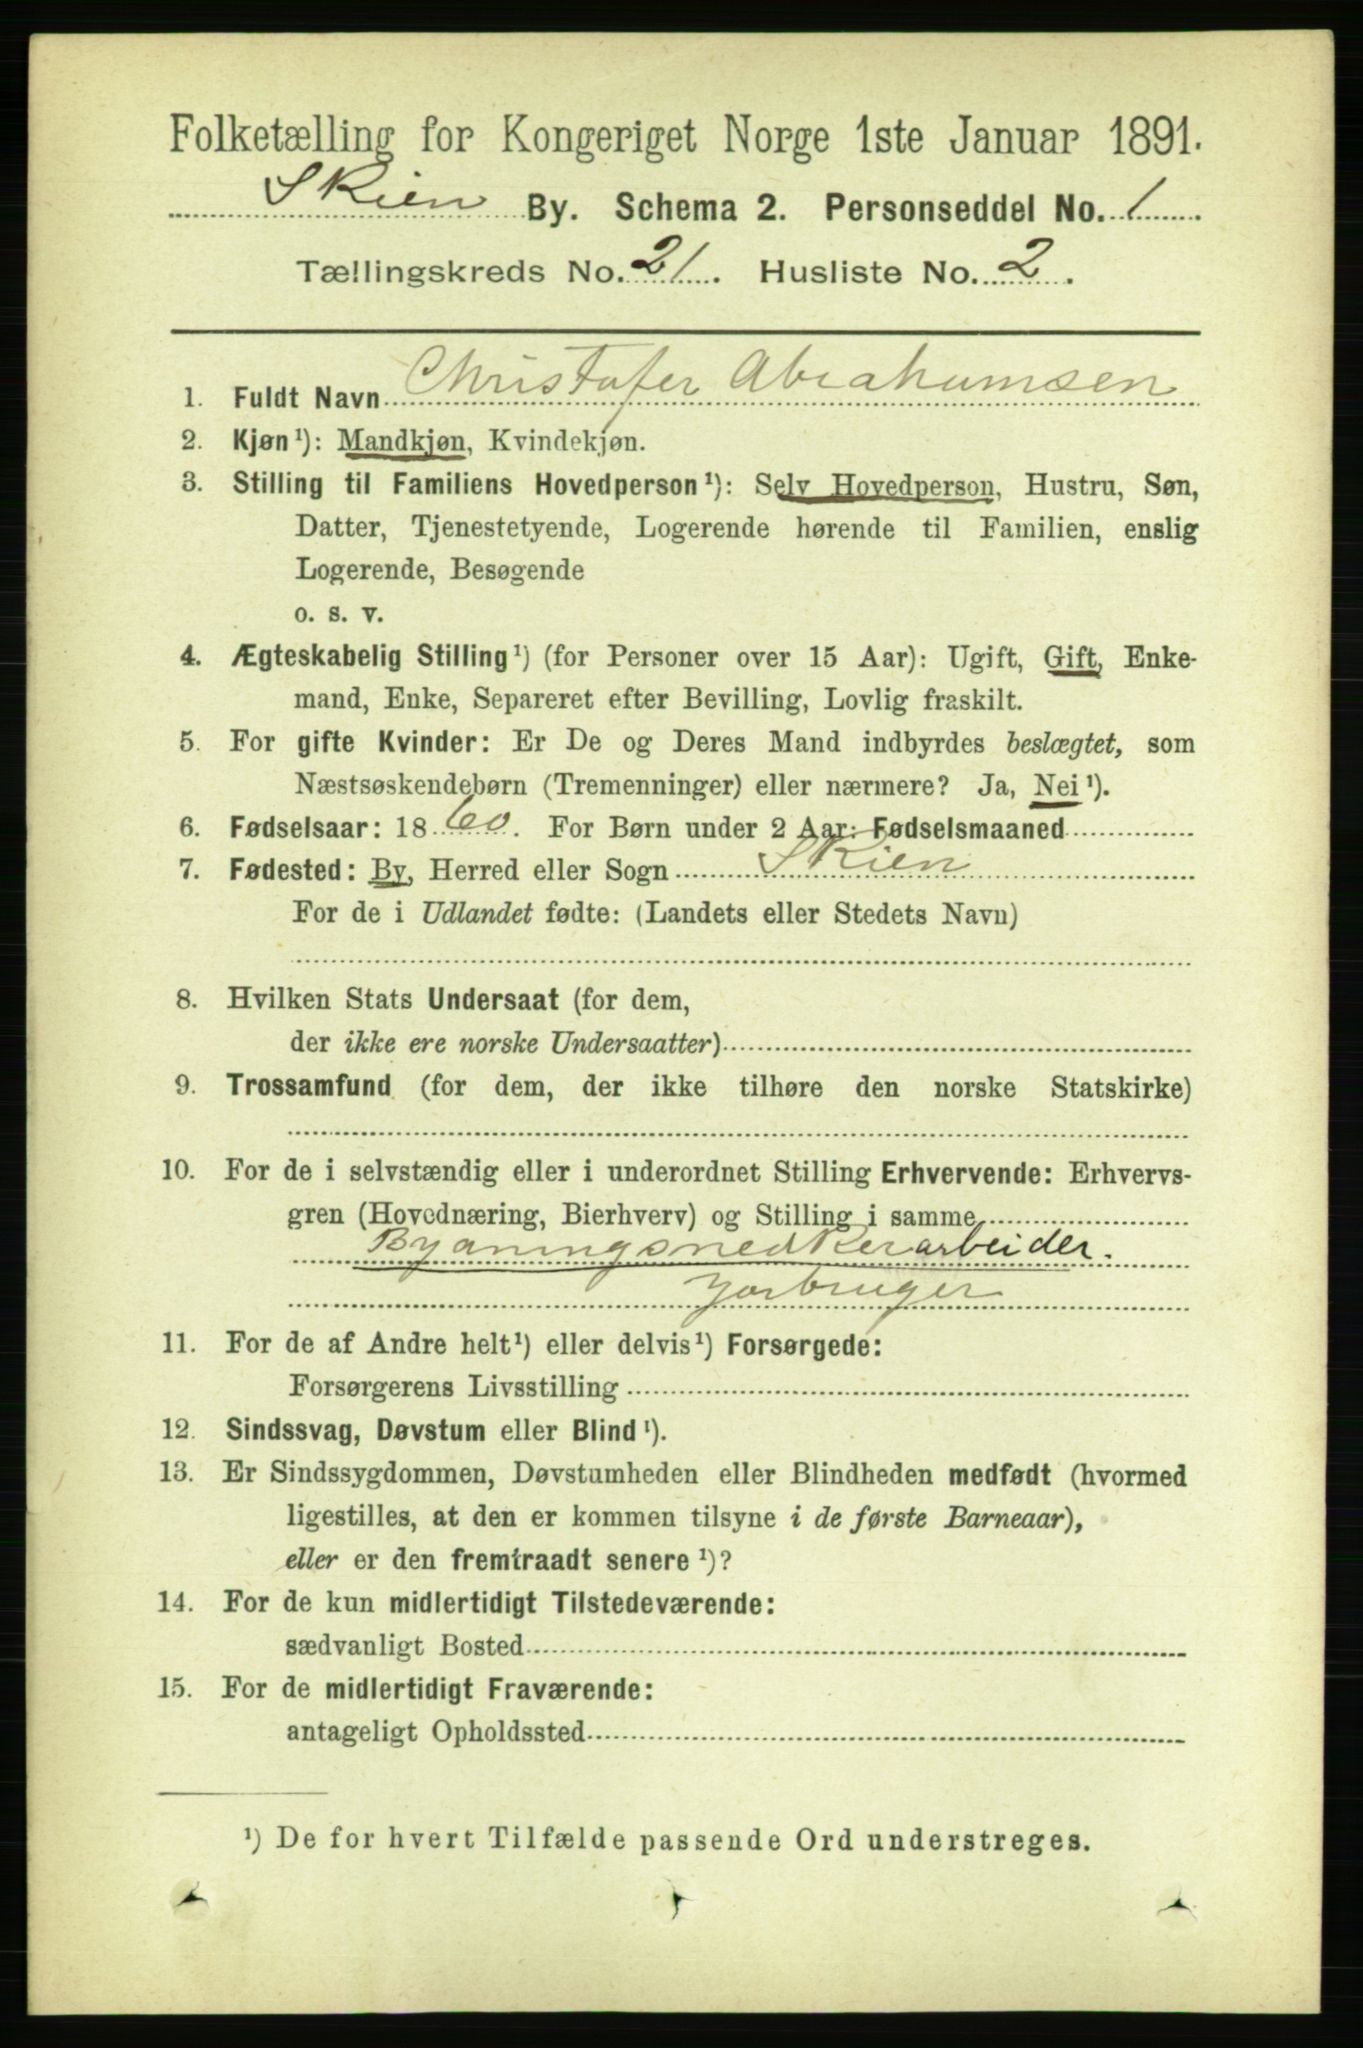 Folketælling for Kongeriget Norge 1ste Januar 1891.
Skien By. Schema 2. Personseddel No. 1
Tællingskreds No. 21. Husliste No. 2.
1. Fuldt Navn Christofer Abrahamsen
2. Kjøn¹): Mandkjøn, Kvindekjøn.
3. Stilling til Familiens Hovedperson¹): Selv Hovedperson, Hustru, Søn,
Datter, Tjenestetyende, Logerende hørende til Familien, enslig
Logerende, Besøgende
o. s. v.
4. Ægteskabelig Stilling¹) (for Personer over 15 Aar): Ugift, Gift, Enke-
mand, Enke, Separeret efter Bevilling, Lovlig fraskilt.
5. For gifte Kvinder: Er De og Deres Mand indbyrdes beslægtet, som
Næstsøskendebørn (Tremenninger) eller nærmere? Ja, Nei¹).
6. Fødselsaar: 1860. For Børn under 2 Aar: Fødselsmaaned
7. Fødested: By, Herred eller Sogn Skien
For de i Udlandet fødte: (Landets eller Stedets Navn)
8. Hvilken Stats Undersaat (for dem,
der ikke ere norske Undersaatter)
9. Trossamfund (for dem, der ikke tilhøre den norske Statskirke)
10. For de i selvstændig eller i underordnet Stilling Erhvervende: Erhvervs-
gren (Hovednæring, Bierhverv) og Stilling i samme
Bygningsnedkerarbeider.
Jorbruger
11. For de af Andre helt¹) eller delvis¹) Forsørgede:
Forsørgerens Livsstilling
12. Sindssvag, Døvstum eller Blind¹).
13. Er Sindssygdommen, Døvstumheden eller Blindheden medfødt (hvormed
ligestilles, at den er kommen tilsyne i de første Barneaar),
eller er den fremtraadt senere¹)?
14. For de kun midlertidigt Tilstedeværende:
sædvanligt Bosted
15. For de midlertidigt Fraværende:
antageligt Opholdssted
¹) De for hvert Tilfælde passende Ord understreges.